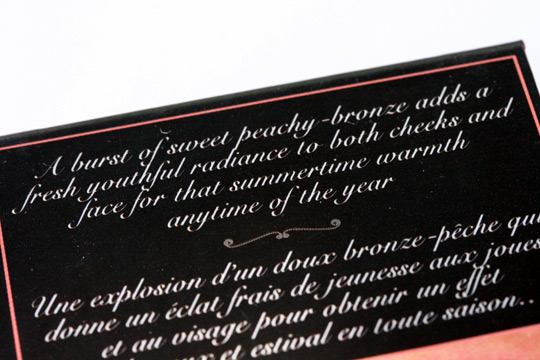 A burst of sweet peachy-bronze adds a
fresh youthful radiance to both cheeks and
face for that summertime warmth
anytime of the year
Une explosion d'un doux bronze-pêche qui
donne un éclat frais de jeunesse aux joues
et au visage pour obtenir un effet
et estival en toute saison..